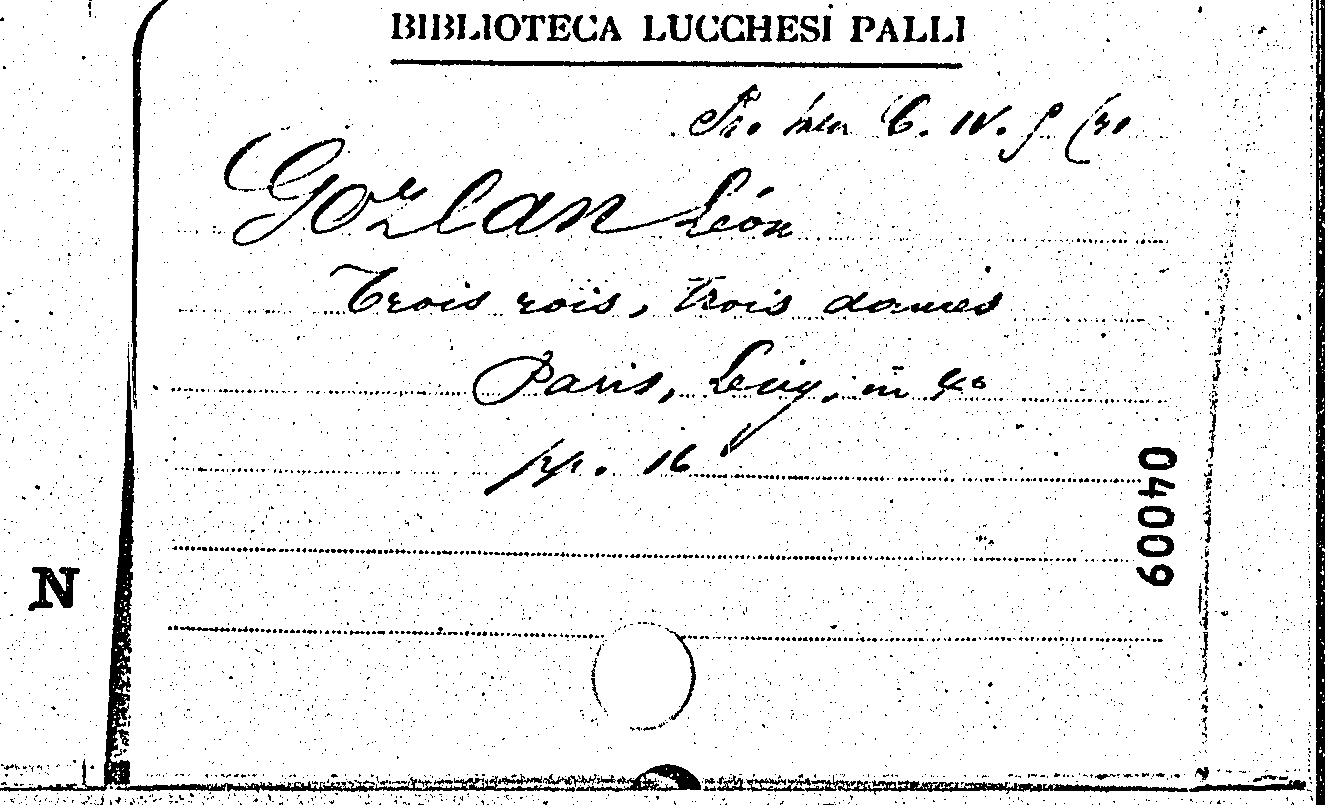 BIBLIOTECA LUCCHESI PALLI
C. IV.
Gozlan Léon
Trois rois, trois dames
Paris, Levy, in 4º
pp. 16
04009
N